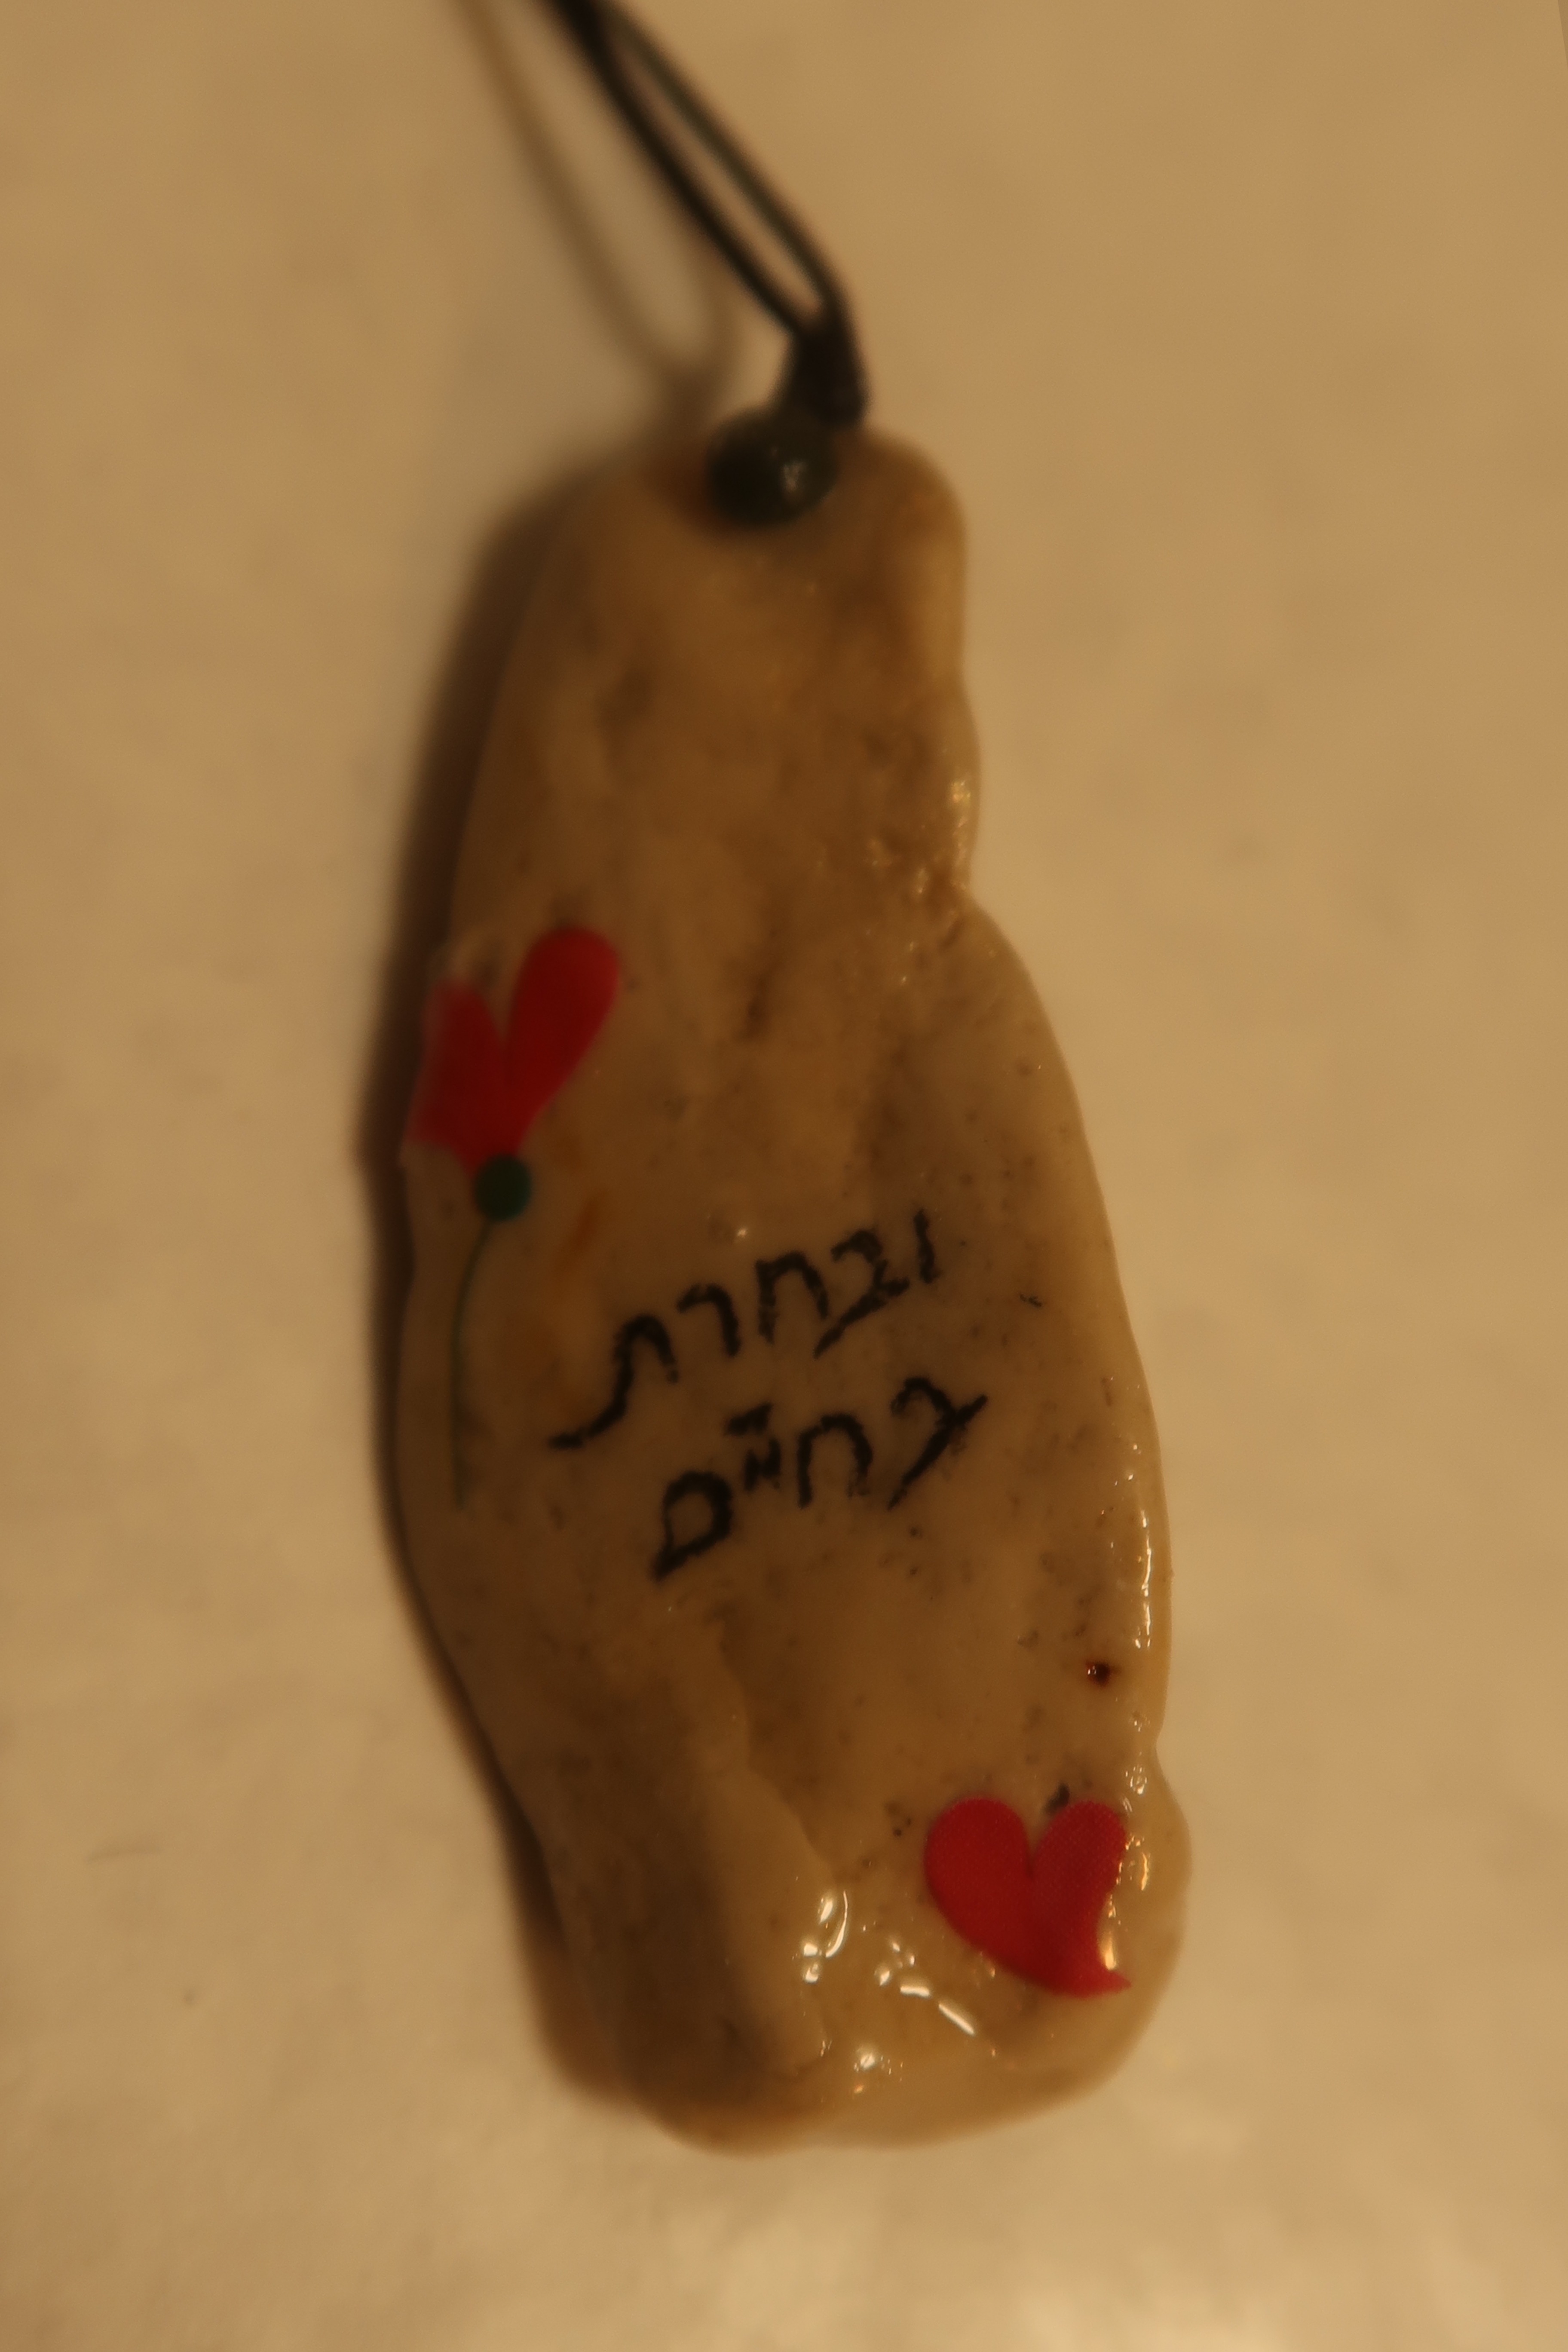 ובחרת
בחיים